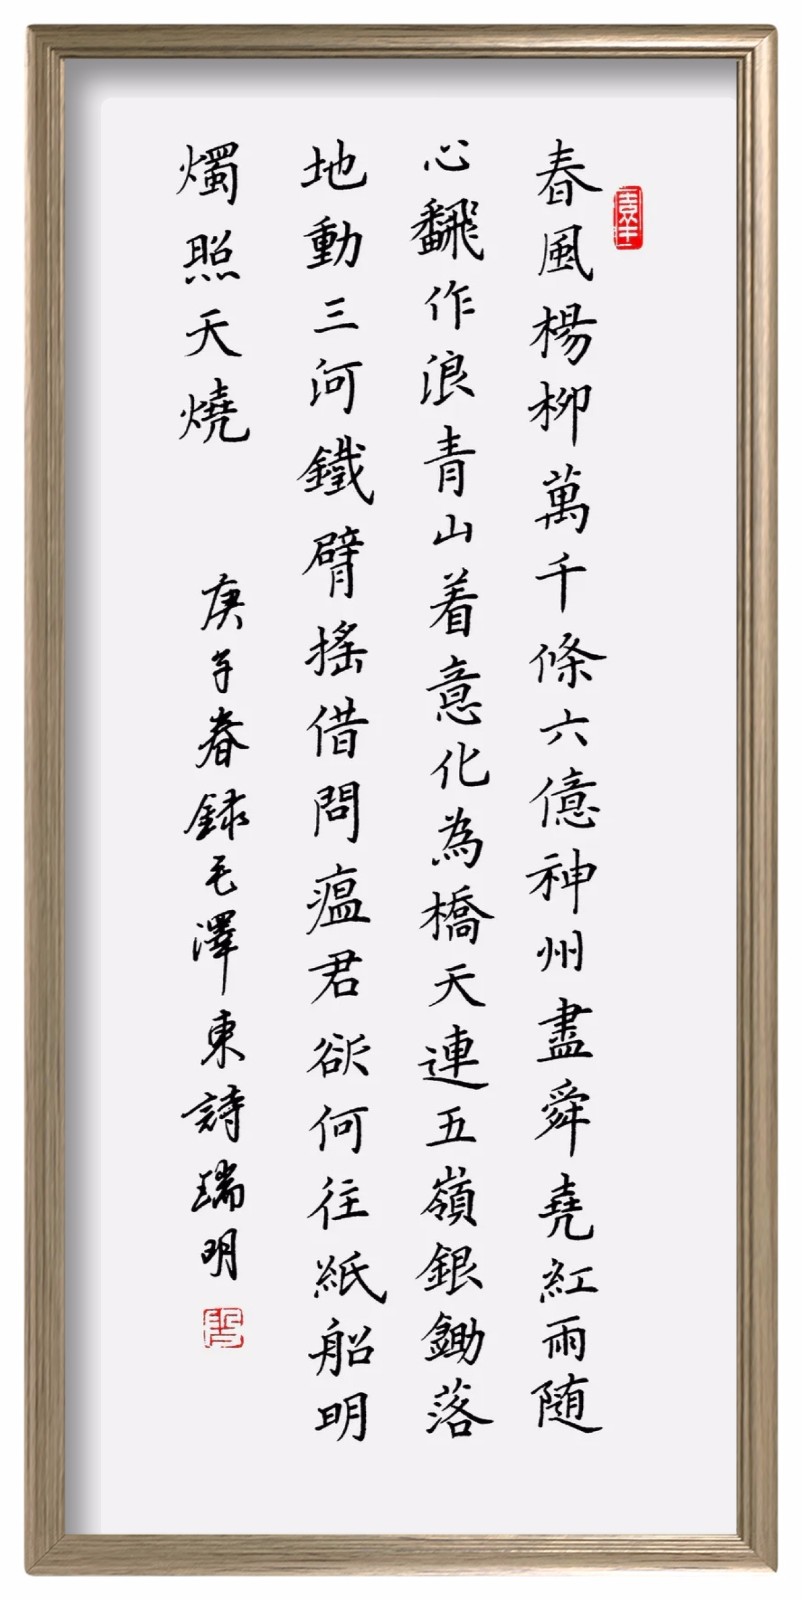 春風楊柳萬千條六億神州盡舜堯紅雨随
心飜作浪青山着意化為橋天連五嶺銀鋤落
地動三河鐵臂搖借問瘟君欲何往紙船明
燭照天燒
庚子春録毛澤東詩瑞明